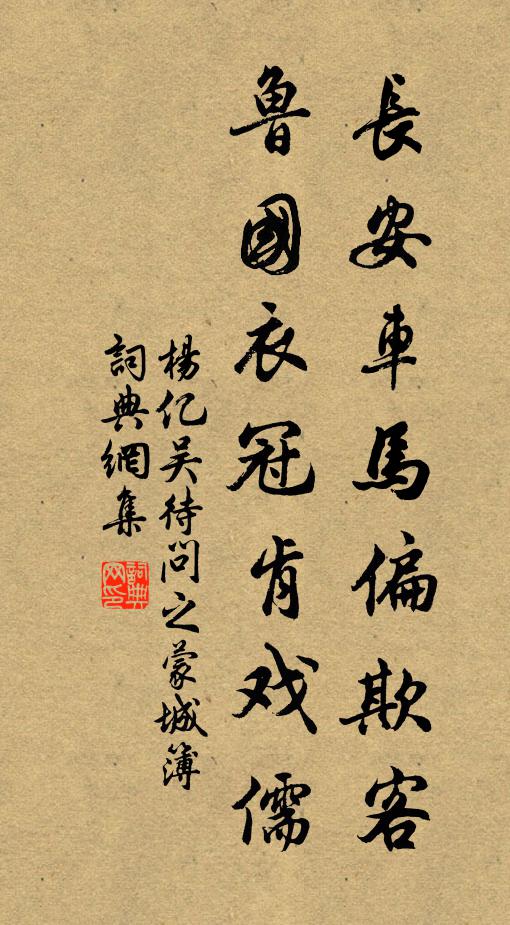 長安車馬偏欺客
魯國衣冠肯戏儒
楊亿吴待问之蒙城簿
詞典網集
詞典网印